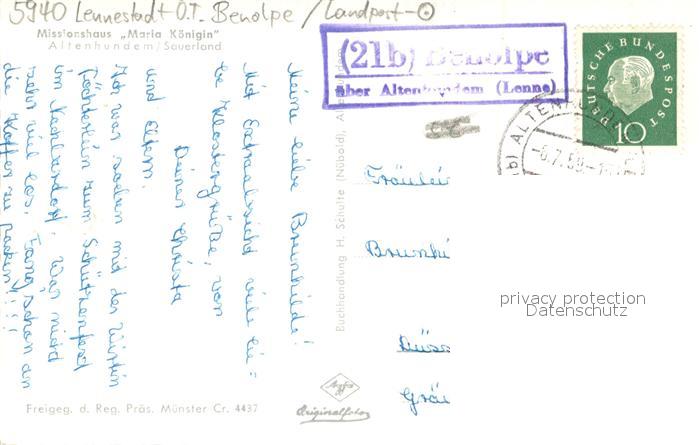 5940 Lennestadt O.T. Benolpe / Landpost-
Missionshaus „Maria Königin"
Altenhundem/Sauerland
(21b) Benolpe
über Altenhundem (Lenne)
DEUTSCHE BUNDESPOST
10
ALTENHUNDEM
-6.7.59.-
Meine liebe Brunhilde!
Mit Extraalsicht viele lie=
be Klostergrüße, von
Deiner Christa
und Eltern.
Ich war soeben mit der Wirtin
Töchterlein zum Schützenfest
im Nachbardorf. War nicht
sehr viel los. Fang schon an
die Koffer zu packen!!!
Buchhandlung H. Schulte (Nübold), Altenhundem
Fräulei
Brunhi
Düss
Gräu
privacy protection
Datenschutz
Agfa
Originalfoto
Freigeg. d. Reg. Präs. Münster Cr. 4437